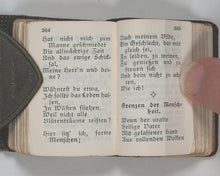 364
Hat nicht mich zum
Manne geschmiedet
Die allmächtige Zeit
Und das ewige Schick-
sal,
Meine Herr'n und dei-
ne?
Wähntest du etwa,
Ich sollte das Leben has-
sen,
In Wüsten fliehen,
Weil nicht alle
Blütenträume reiften?
Hier sitz' ich, forme
Menschen;
365
Nach meinem Bilde,
Ein Geschlecht, das mir
gleich sei,
Zu leiden, zu weinen,
Zu genießen und zu
freuen sich
Und dein nicht zu ach-
ten,
Wie ich!
Grenzen der Mensch-
heit.
Wenn der uralte
Heilige Vater
Mit gelassener Hand
Aus rollenden Wolken